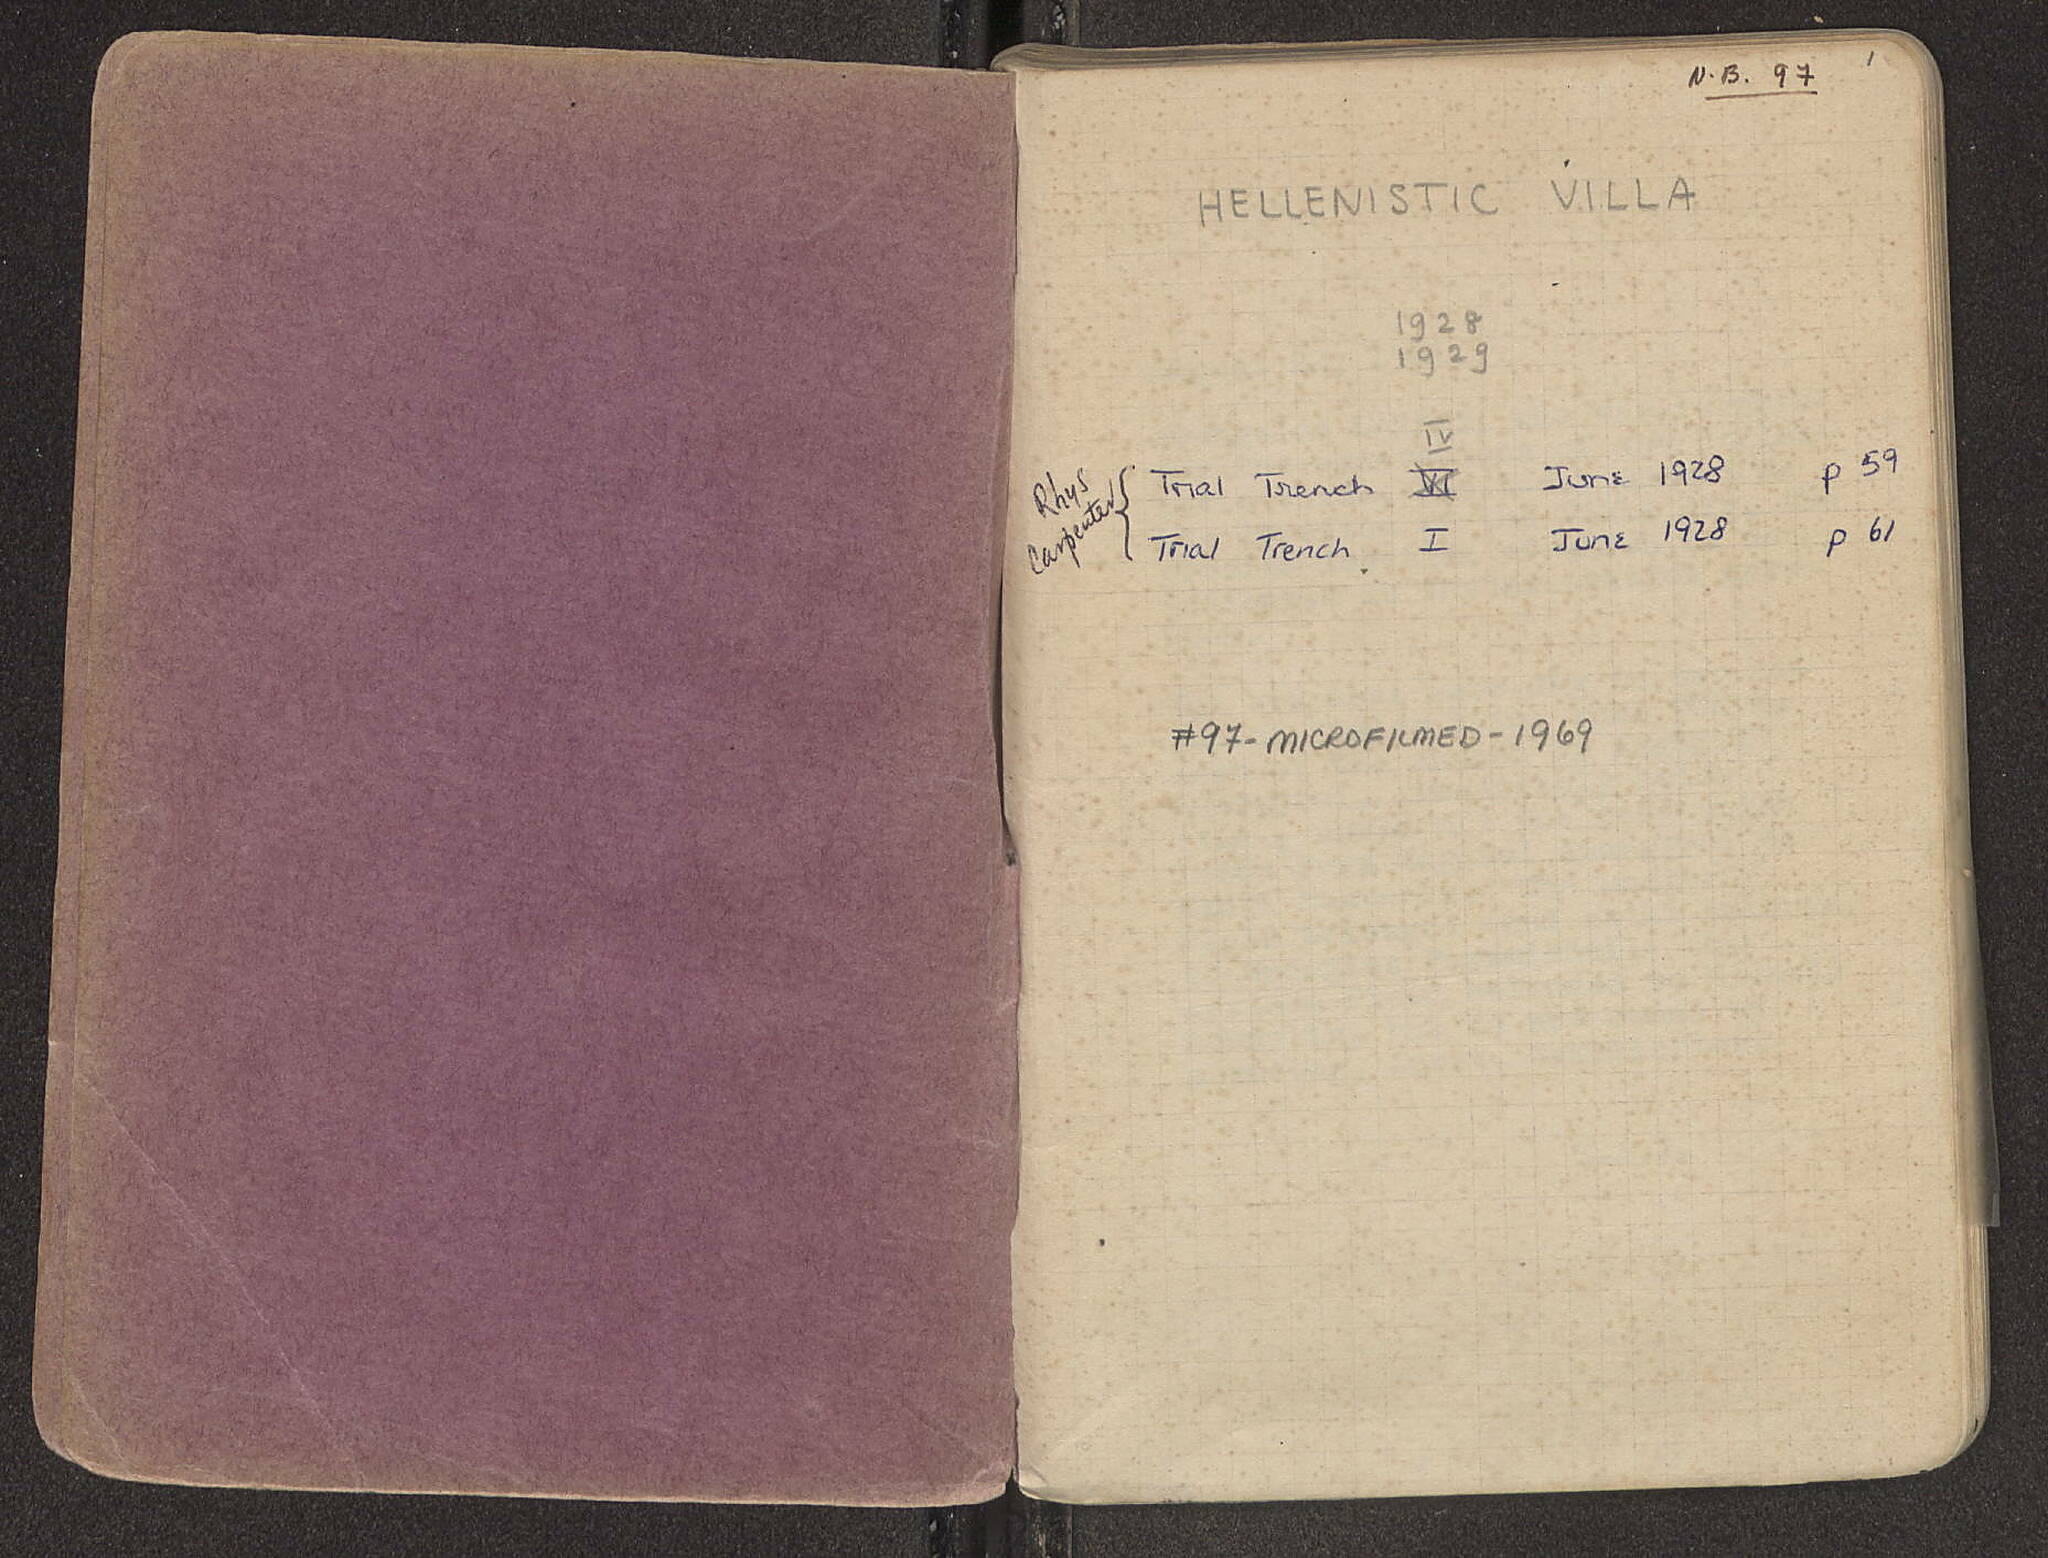 N.B. 97
1
HELLENISTIC VILLA
1928
1929
IV
Rhys
Carpenter
Trial Trench VI June 1928 p 59
Trial Trench I June 1928 p 61
#97-MICROFILMED-1969